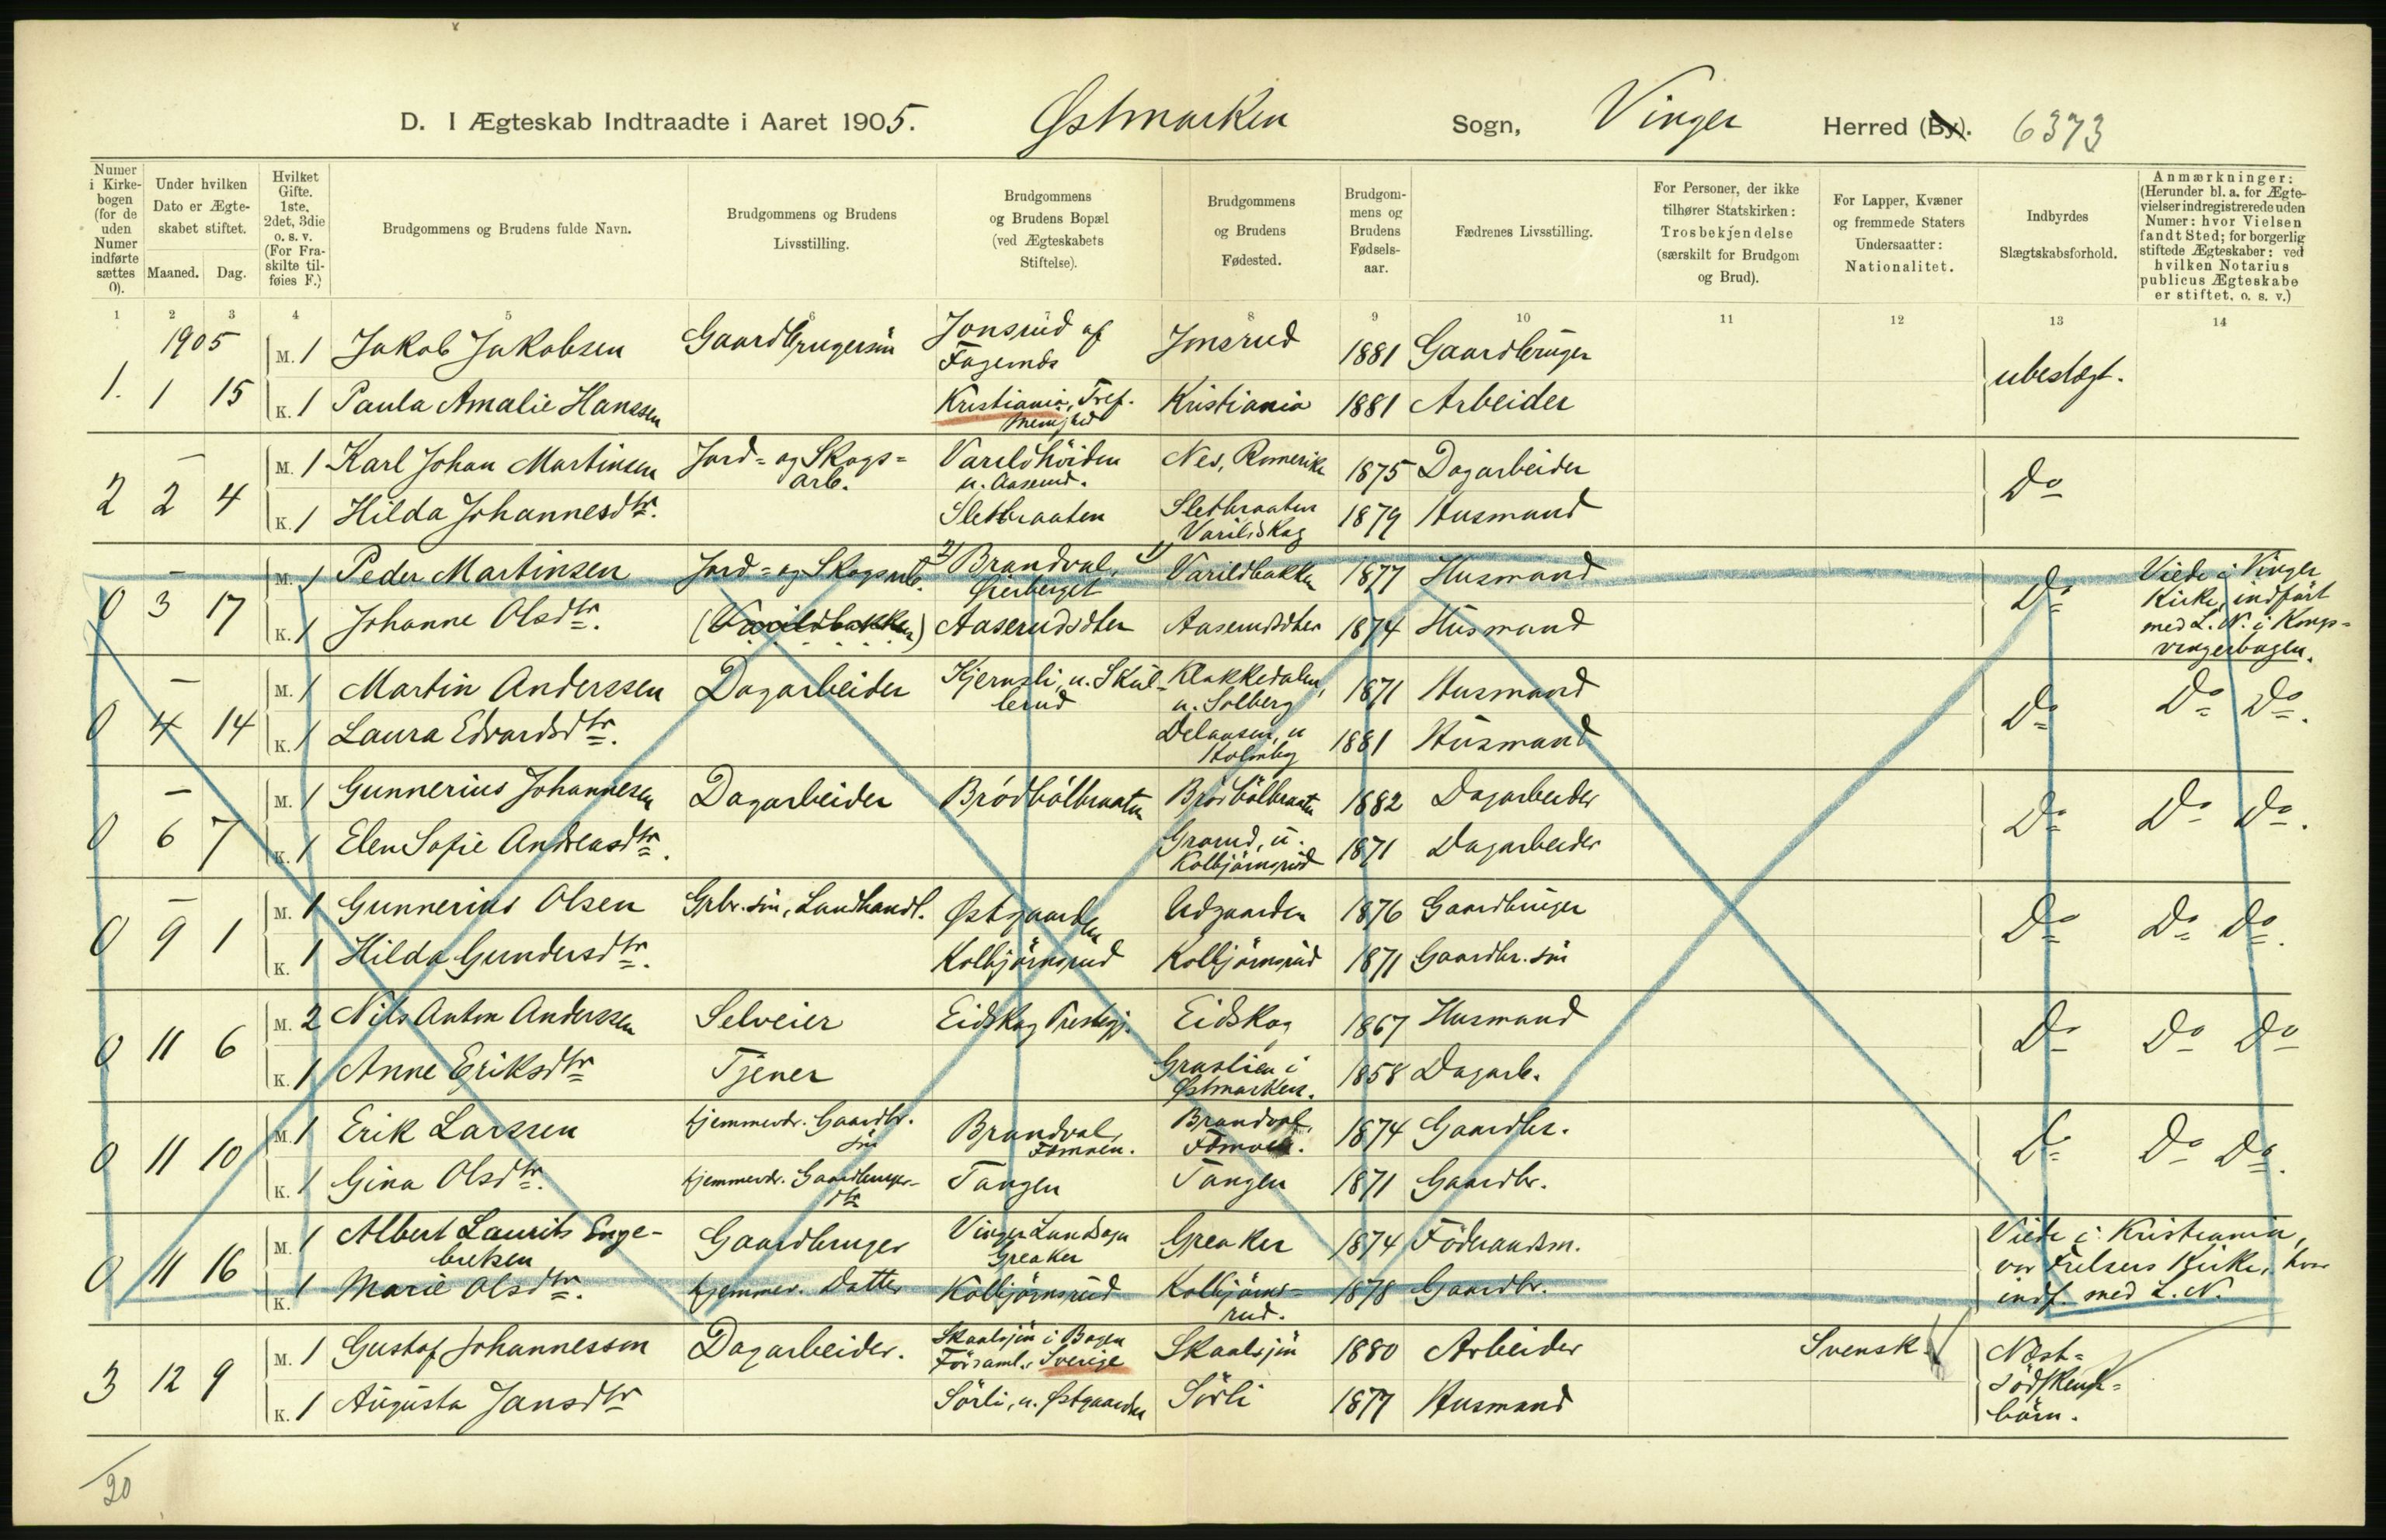 D. I Ægteskab Indtraadte i Aaret 1905. Østmarken Sogn, Vinger Herred (By). 6373
Numer i Kirkebogen (for de uden Numer indførte sættes 0).
Under hvilken Dato er Ægteskabet stiftet.
Maaned. Dag.
Hvilket Gifte. 1ste, 2det, 3die o. s. v. (For Fraskilte tilføies F.)
Brudgommens og Brudens fulde Navn.
Brudgommens og Brudens Livsstilling.
Brudgommens og Brudens Bopæl (ved Ægteskabets Stiftelse).
Brudgommens og Brudens Fødested.
Brudgommens og Brudens Fødselsaar.
Fædrenes Livsstilling.
For Personer, der ikke tilhører Statskirken: Trosbekjendelse (særskilt for Brudgom og Brud).
For Lapper, Kvæner og fremmede Staters Undersaatter: Nationalitet.
Indbyrdes Slægtskabsforhold.
Anmærkninger: (Herunder bl. a. for Ægtevielser indregistrerede uden Numer: hvor Vielsen fandt Sted; for borgerlig stiftede Ægteskaber: ved hvilken Notarius publicus Ægteskabe er stiftet, o. s. v.)
1 2 3 4 5 6 8 9 10 11 12 13 14
1905
1. 1 15 M. 1 Jakob Jakobsen Gaardbrugersøn Jonsrud af Jonsrud 1881 Gaardbruger ubeslægt.
K. 1 Paula Amalie Hanssen Kristiania, Tref. Menighed Kristiania 1881 Arbeider
2 2 4 M. 1 Karl Johan Martinsen Jord- og Skogs-arb. Varildhöiden u. Aaserud. Nes, Romerike 1875 Dagarbeider Do
K. 1 Hilda Johannesdtr. Sletbraaten Sletbraaten Varildskog 1879 Husmand
0 3 17 M. 1 Peder Martinsen Jord- og Skogsarb. 2) Brandval, 1) Varildbakke 1877 Husmand Do Viede i Vinger Kirke, indført med L. N. i Kongsvingerbogen.
K. 1 Johanne Olsdtr. (Varildbakken) Aaserudsdter Aaserudsdter 1874 Husmand
0 4 14 M. 1 Martin Anderssen Dagarbeider Kjernsli, u. Skulberud Klakkedalen, u. Solberg 1871 Husmand Do Do Do.
K. 1 Laura Edvardsdtr. 1881 Husmand
0 6 7 M. 1 Gunnerius Johannesen Dagarbeider Brödbölbraaten Brödbölbraaten 1882 Dagarbeider Do Do Do.
K. 1 Elen Sofie Andreasdtr. Grorud, u. Kolbjörnsrud 1871 Dagarbeider
0 9 1 M. 1 Gunnerius Olsen Grbr. sön, Landhandl. Østgaarden Udgaarden 1876 Gaardbruger Do Do Do.
K. 1 Hilda Gundersdtr. Kolbjörnsrud Kolbjörnsrud 1871 Gaardbr. sön
0 11 6 M. 2 Nils Anton Anderssen Selveier Eidskog Prestegj. Eidskog 1867 Husmand Do Do Do
K. 1 Anne Eriksdtr Tjener Graslien i Østmarken. 1858 Dagarb.
0 11 10 M. 1 Erik Larssen hjemmevær. Gaardbr. sön Brandval, Brandval, 1874 Gaardbr. Do Do Do.
K. 1 Gina Olsdtr. hjemmevær. Gaardbruger-dtr Tangen Tangen 1871 Gaardbr.
0 11 16 M. 1 Albert Laurits Engebretsen Gaardbruger Vinger Landsogn Greaker Greaker 1874 Föderaadsm. Viede i Kristiania, vor Frelsers Kirke, hvor indf. med L. N.
K. 1 Marie Olsdtr. hjemmev. Datter Kolbjörnsrud Kolbjörnsrud. 1878 Gaardbr.
3 12 9 M. 1 Gustaf Johannesson Dagarbeider. Skaalsjön i Bogen Församl., Sverige Skaalsjön 1880 Arbeider Svensk. Næst-södskend-börn.
K. 1 Augusta Jansdtr Sörli, u. Østgaarden Sörli 1877 Husmand
20